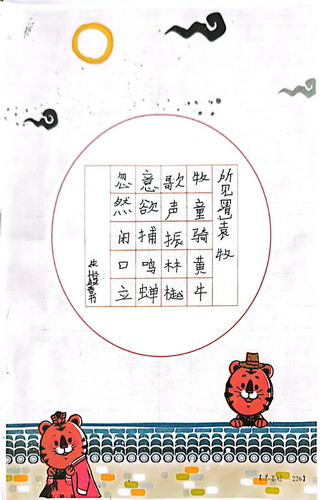 所见袁牧
牧童骑黄牛
歌声振林樾
意欲捕鸣蝉
忽然闲口立